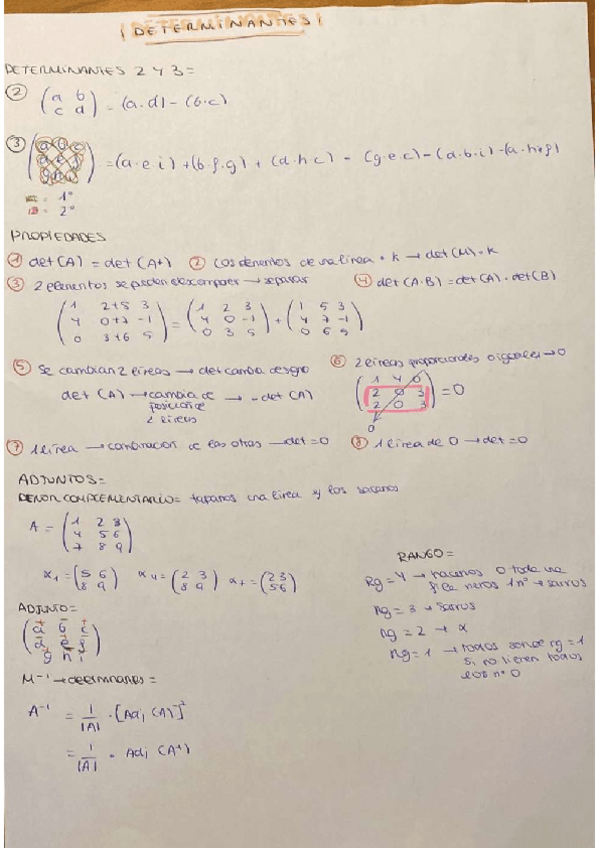 ¡DETERMINANTES!
DETERMINANTES 2 Y 3 =
② (a b
c d) = (a·d) - (b·c)
③ (a b c
d e f
g h i) = (a·e·i) + (b·f·g) + (d·h·c) - (g·e·c) - (a·b·i) - (a·h·f)
= 1º
= 2º
PROPIEDADES
① det(A) = det(At) ② Los elementos de una línea · k → det(M)·k
③ 2 elementos se pueden descomponer → separar ④ det(A·B) = det(A)·det(B)
(1 2+5 3
4 0+7 -1
0 3+6 5) = (1 2 3
4 0 -1
0 3 5) + (1 5 3
4 7 -1
0 6 5)
⑤ Se cambian 2 líneas → det cambia de signo ⑥ 2 líneas proporcionales o iguales → 0
det(A) → cambia de posición de 2 líneas → - det(A)
(1 4 0
2 0 3
2 0 3) = 0
0
⑦ 1 línea → combinación de las otras → det = 0 ⑧ 1 línea de 0 → det = 0
ADJUNTOS =
MENOR COMPLEMENTARIO = tapamos una línea y los sacamos
A = (1 2 3
4 5 6
7 8 9)
α1 = (5 6
8 9) α4 = (2 3
8 9) α7 = (2 3
5 6)
ADJUNTO =
(a b c
d e f
g h i)
M-1 → determinantes =
A-1 = 1/|A| · [Adj (A)]t
= 1/|A| · Adj (At)
RANGO =
Rg = 4 → hacemos 0 toda una
fila menos 1 nº → sarrus
Rg = 3 → Sarrus
Rg = 2 → α
Rg = 1 → todos son de rg = 1
si no tienen todos
los nº 0